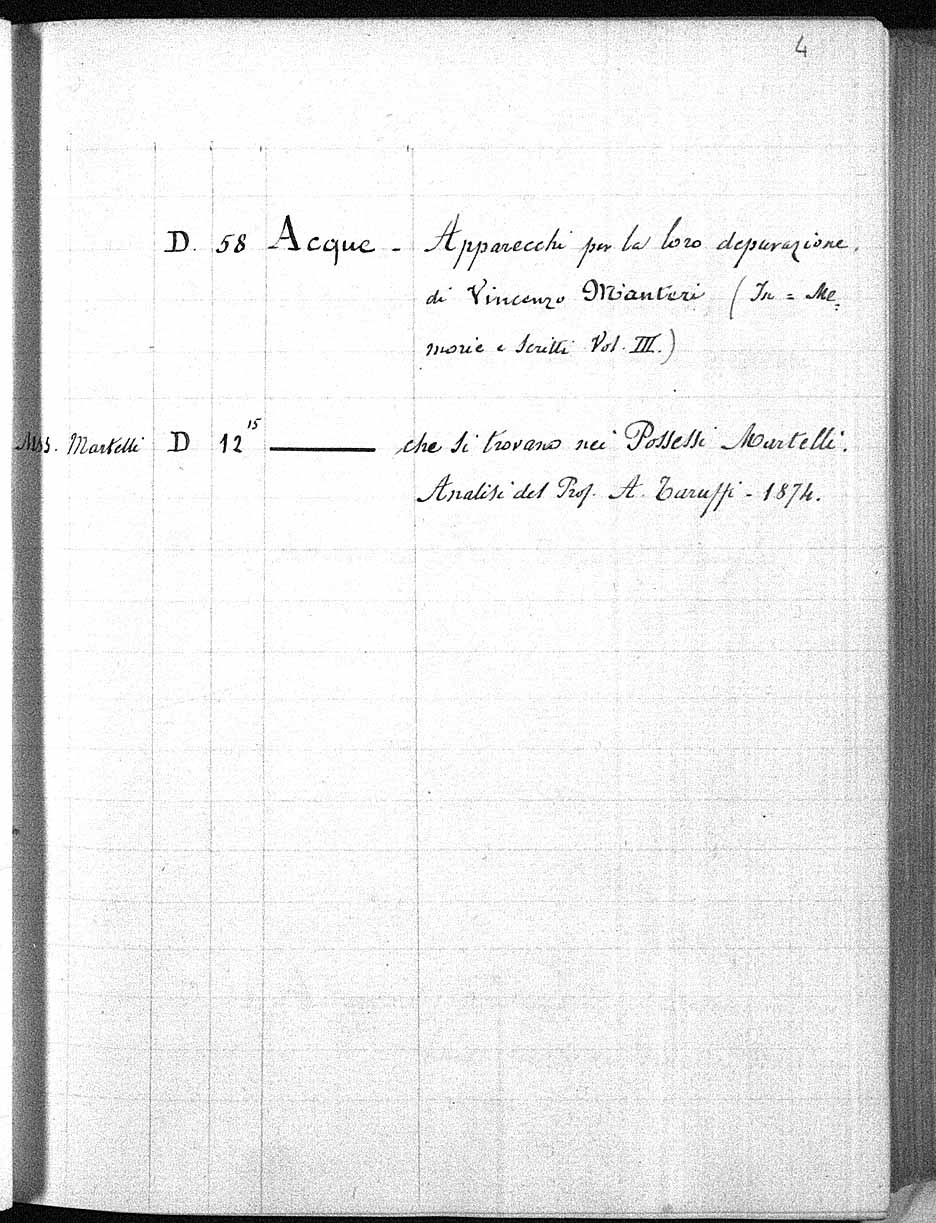 4
D. 58 Acque - Apparecchi per la loro depurazione.
di Vincenzo Manteri (In = Me=
morie e Scritti Vol. III.)
Mss. Martelli D 12 15 ——— che si trovano nei Possessi Martelli.
Analisi del Prof. A. Taruffi - 1874.